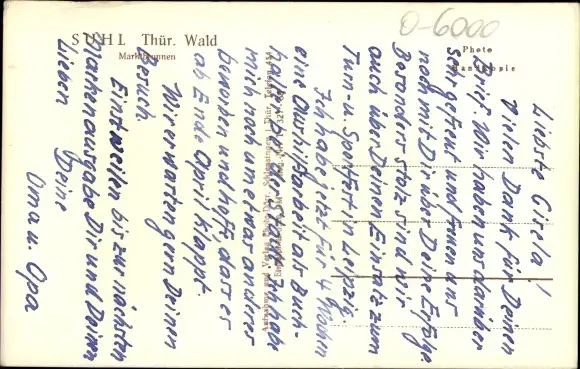 SUHL Thür. Wald
Marktbrunnen
0-6000
Photo
Handkopie
Liebste Gisela!
Vielen Dank für Deinen
Brief. Wir haben uns darüber
sehr gefreut und freuen uns
noch mit Dir über Deine Erfolge.
Besonders stolz sind wir
auch über Deinen Einsatz zum
Turn- u. Sportfest in Leipzig.
Ich habe jetzt für 4 Wochen
eine Aushilfsarbeit als Buch-
halter bei der Stadt. Ich habe
mich noch um etwas anderes
beworben und hoffe, dass es
ab Ende April klappt.
Wir erwarten gern Deinen
Besuch.
Einstweilen bis zur nächsten
Markenausgabe Dir und Deinen
Lieben
Deine
Oma u. Opa
Aufnahme und Verlag